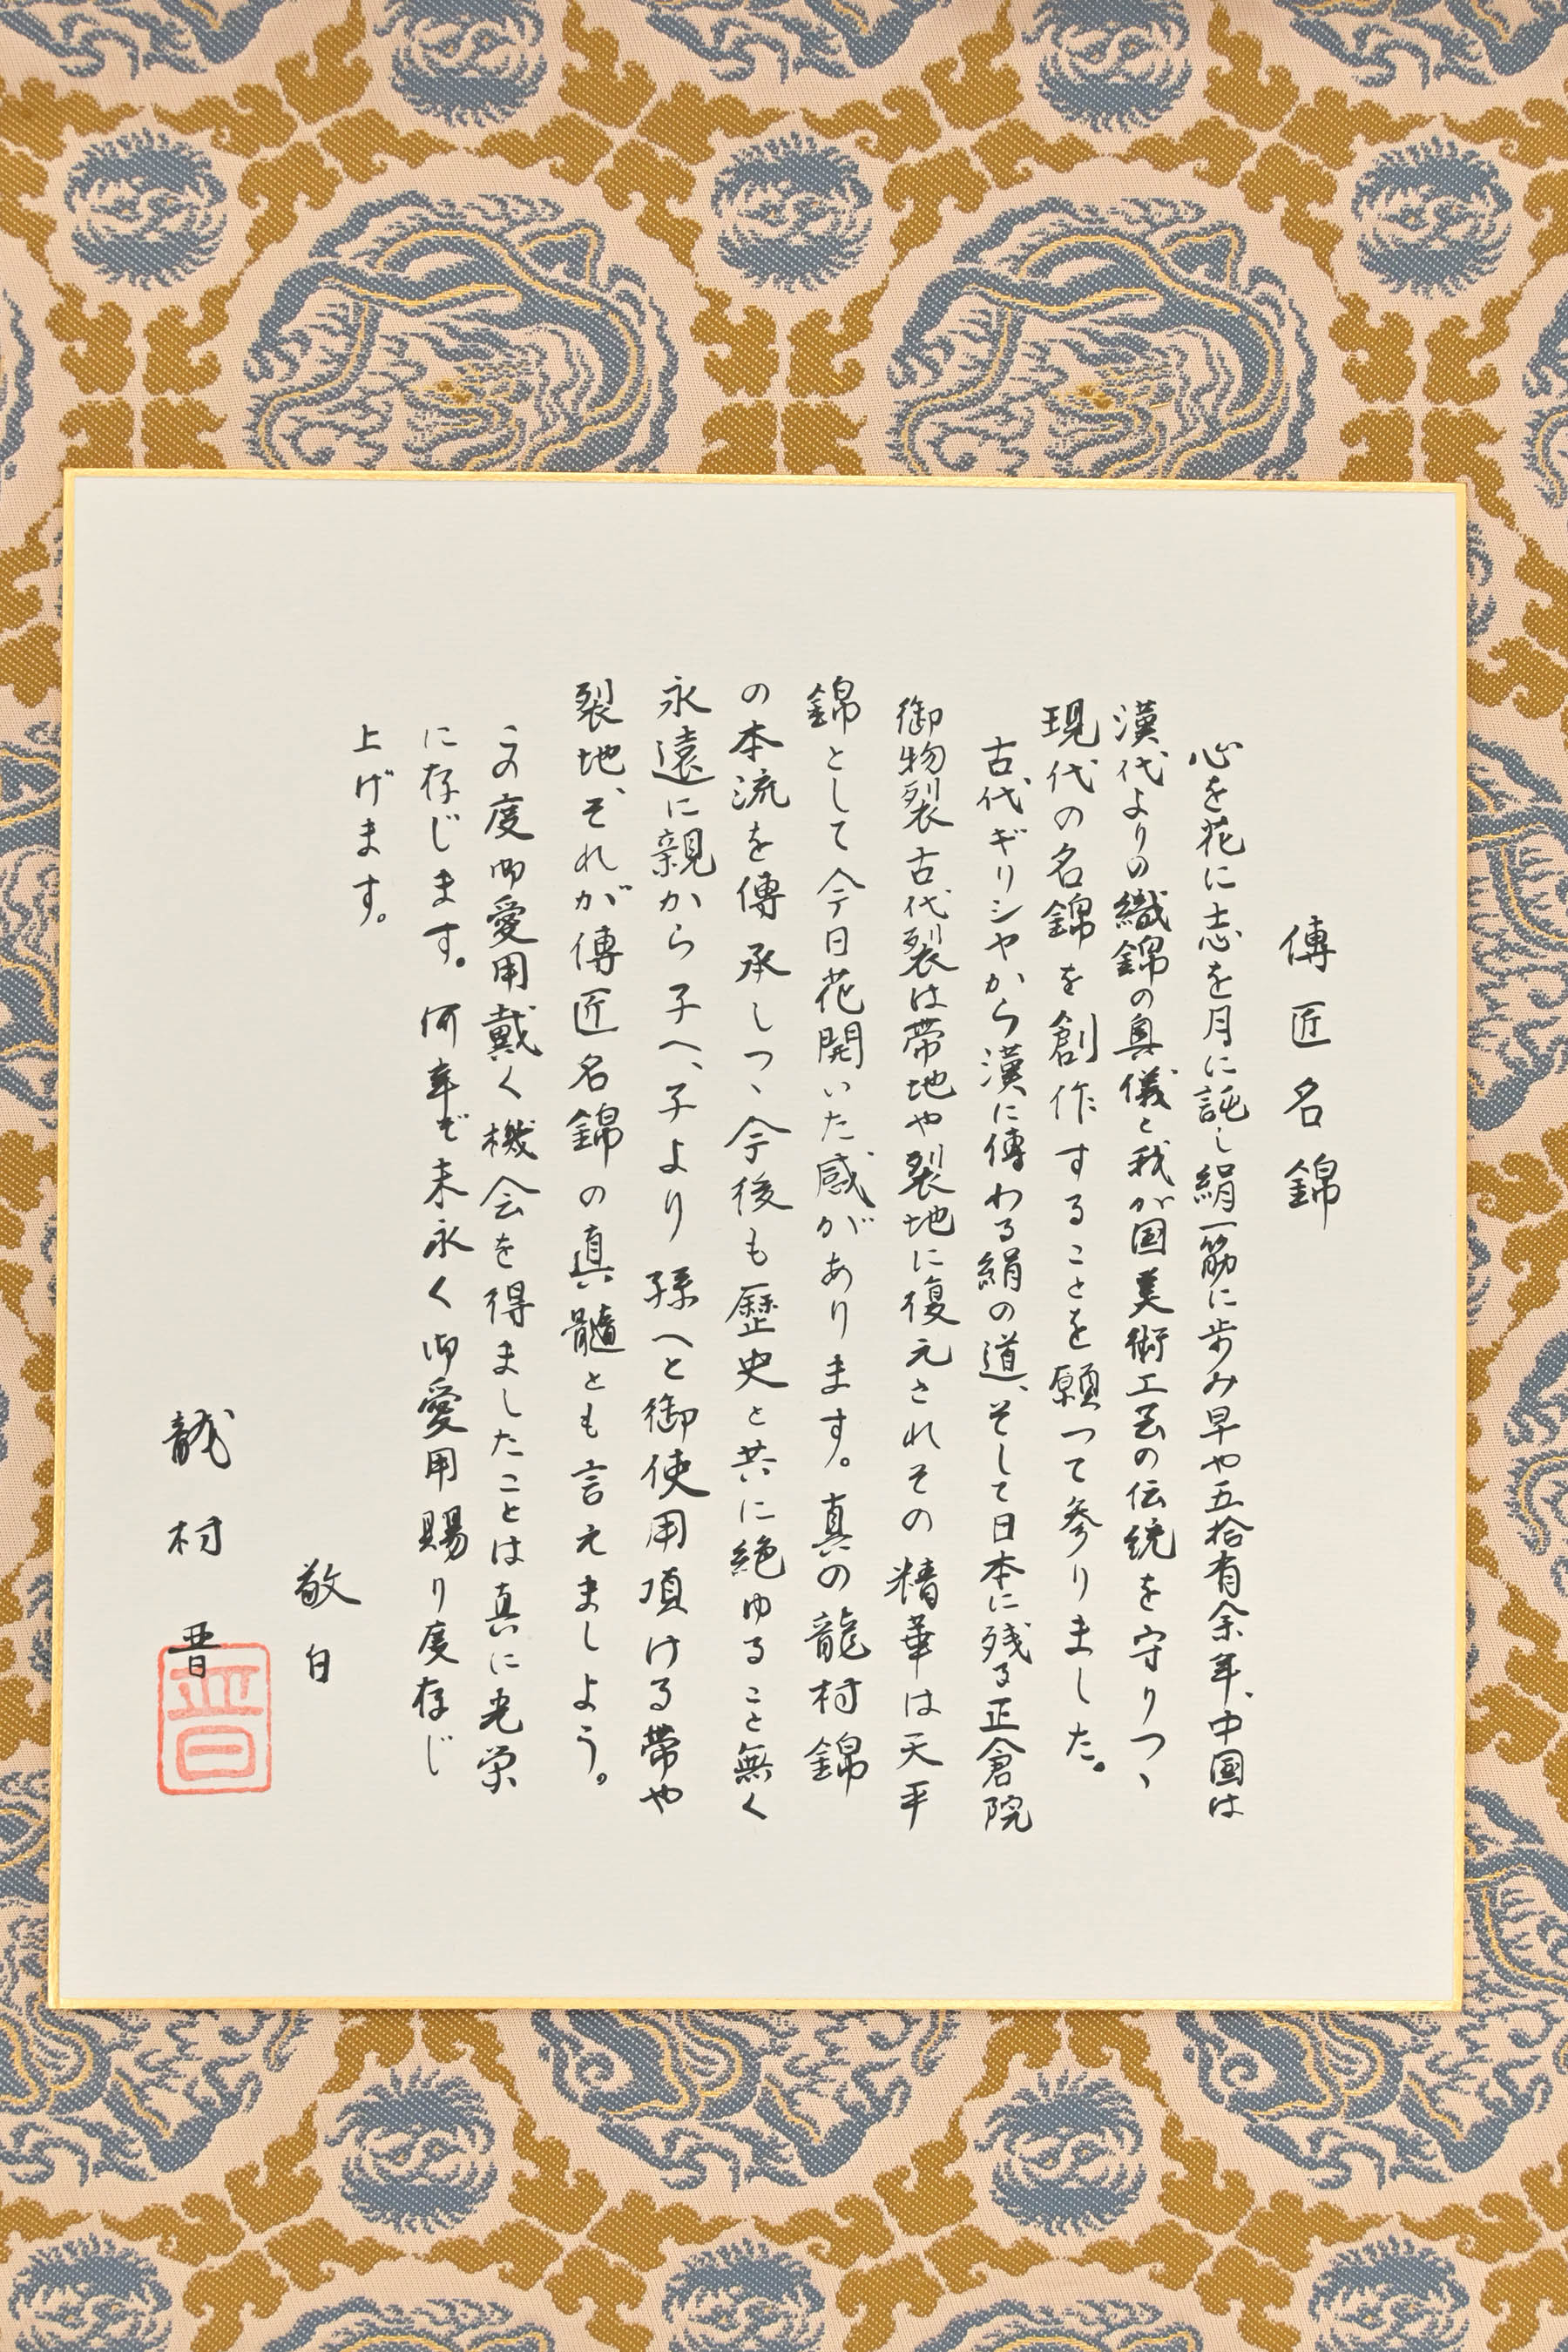 傳匠名錦
心を花に志を月に託し絹一筋に歩み早や五拾有余年、中国は
漢代よりの織錦の奥儀と我が国美術工芸の伝統を守りつゝ
現代の名錦を創作することを願つて参りました。
古代ギリシヤから漢に傳わる絹の道、そして日本に残る正倉院
御物裂古代裂は帯地や裂地に復元されその精華は天平
錦として今日花開いた感があります。真の龍村錦
の本流を傳承しつゝ今後も歴史と共に絶ゆること無く
永遠に親から子へ、子より孫へと御使用頂ける帯や
裂地、それが傳匠名錦の真髄とも言えましよう。
この度御愛用戴く機会を得ましたことは真に光栄
に存じます。何卒末永く御愛用賜り度存じ
上げます。
敬白
龍村晋
晋